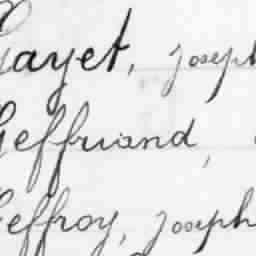 Gayet, joseph
Geffriand,
Geffroy, joseph